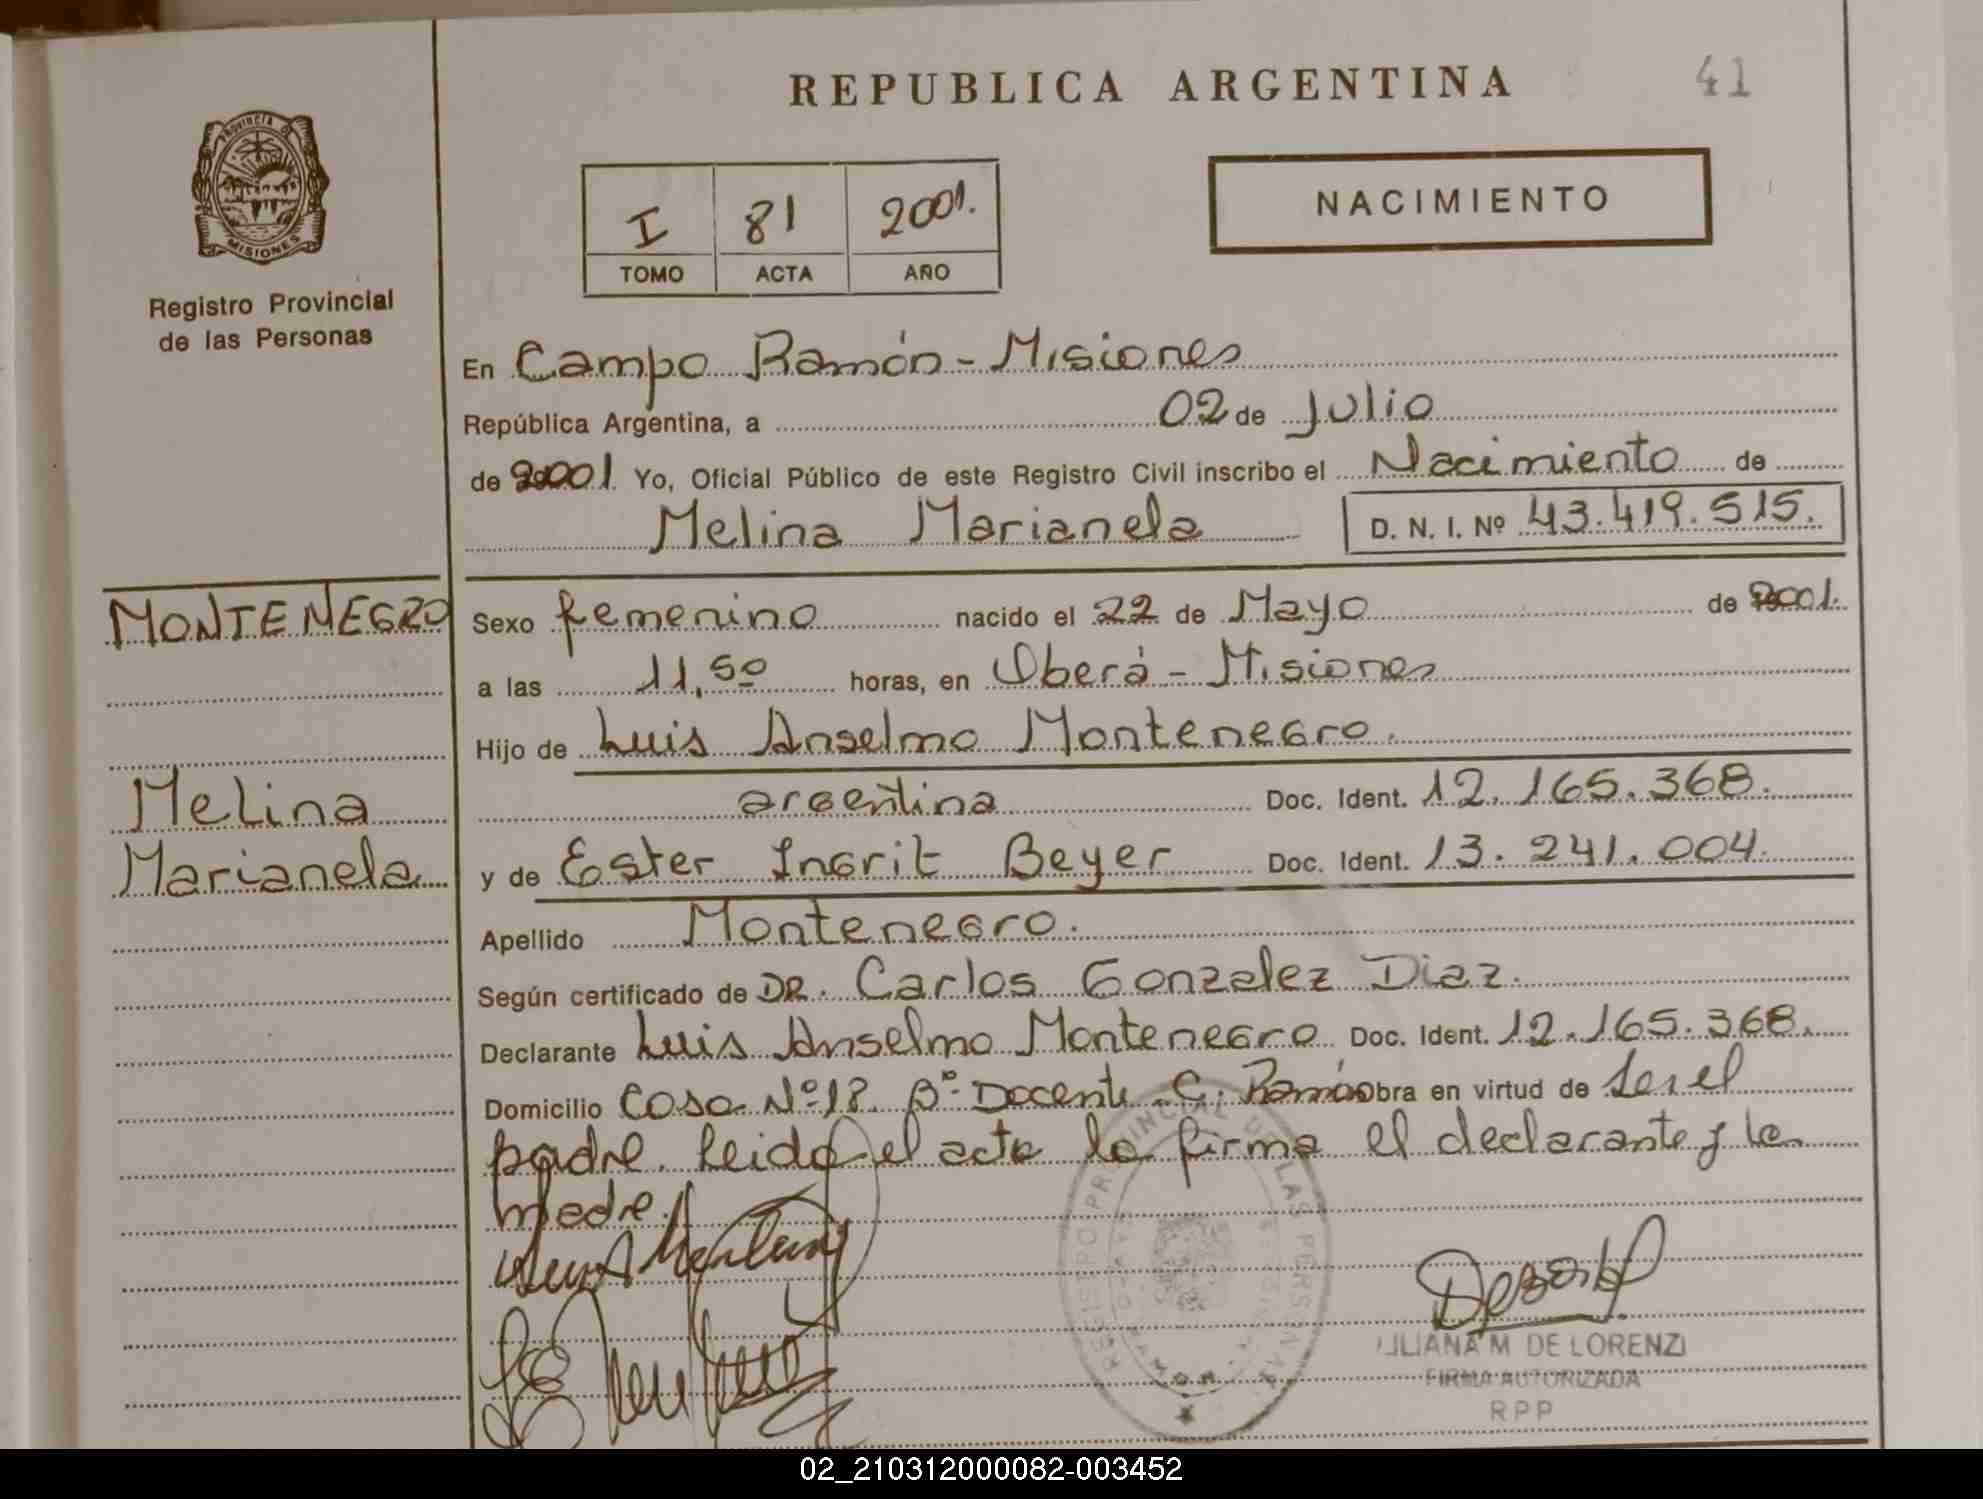 REPUBLICA ARGENTINA
41
PROVINCIA DE
MISIONES
Registro Provincial
de las Personas
I 81 2001.
TOMO ACTA AÑO
NACIMIENTO
En Campo Ramón - Misiones
República Argentina, a 02 de Julio
de 2001. Yo, Oficial Público de este Registro Civil inscribo el Nacimiento de
Melina Marianela D. N. I. Nº 43.419.515.
MONTENEGRO
Sexo femenino nacido el 22 de Mayo de 2001.
a las 11,50 horas, en Oberá - Misiones
Hijo de Luis Anselmo Montenegro.
Melina
argentina Doc. Ident. 12.165.368.
Marianela
y de Ester Ingrit Beyer Doc. Ident. 13.241.004.
Apellido Montenegro.
Según certificado de DR. Carlos Gonzalez Diaz.
Declarante Luis Anselmo Montenegro Doc. Ident. 12.165.368.
Domicilio Casa Nº 18 Bº Docente C. Ramón obra en virtud de ser el
padre. Leida el acta la firma el declarante y la
madre.
REGISTRO PROVINCIAL DE LAS PERSONAS
LILIANA M DE LORENZI
FIRMA AUTORIZADA
RPP
02_210312000082-003452